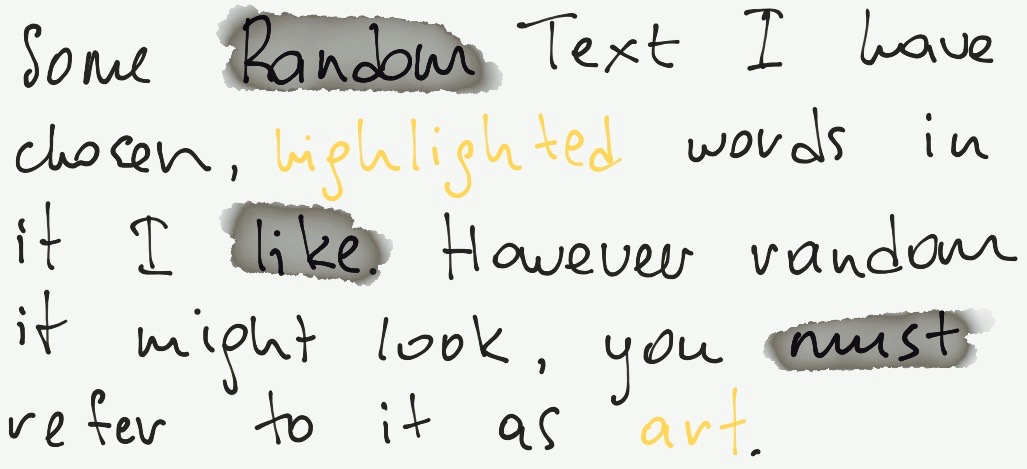 Some Random Text I have
chosen, highlighted words in
it I like. However random
it might look, you must
refer to it as art.